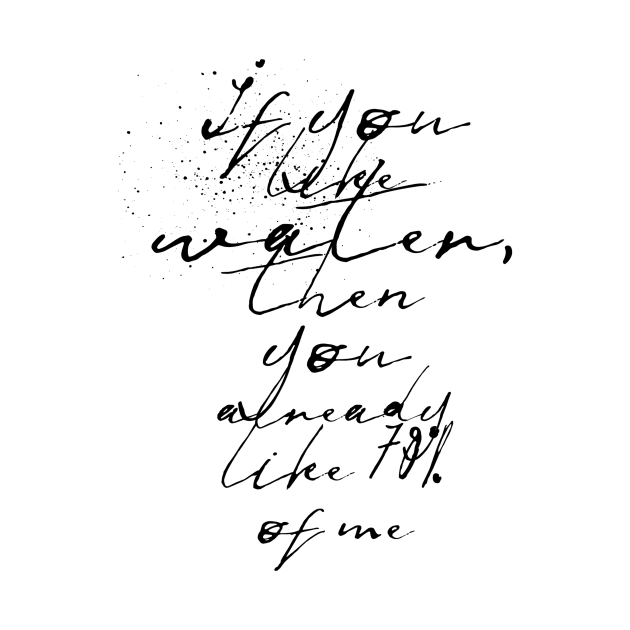 if you
like
water,
then
you
already
like 78%
of me